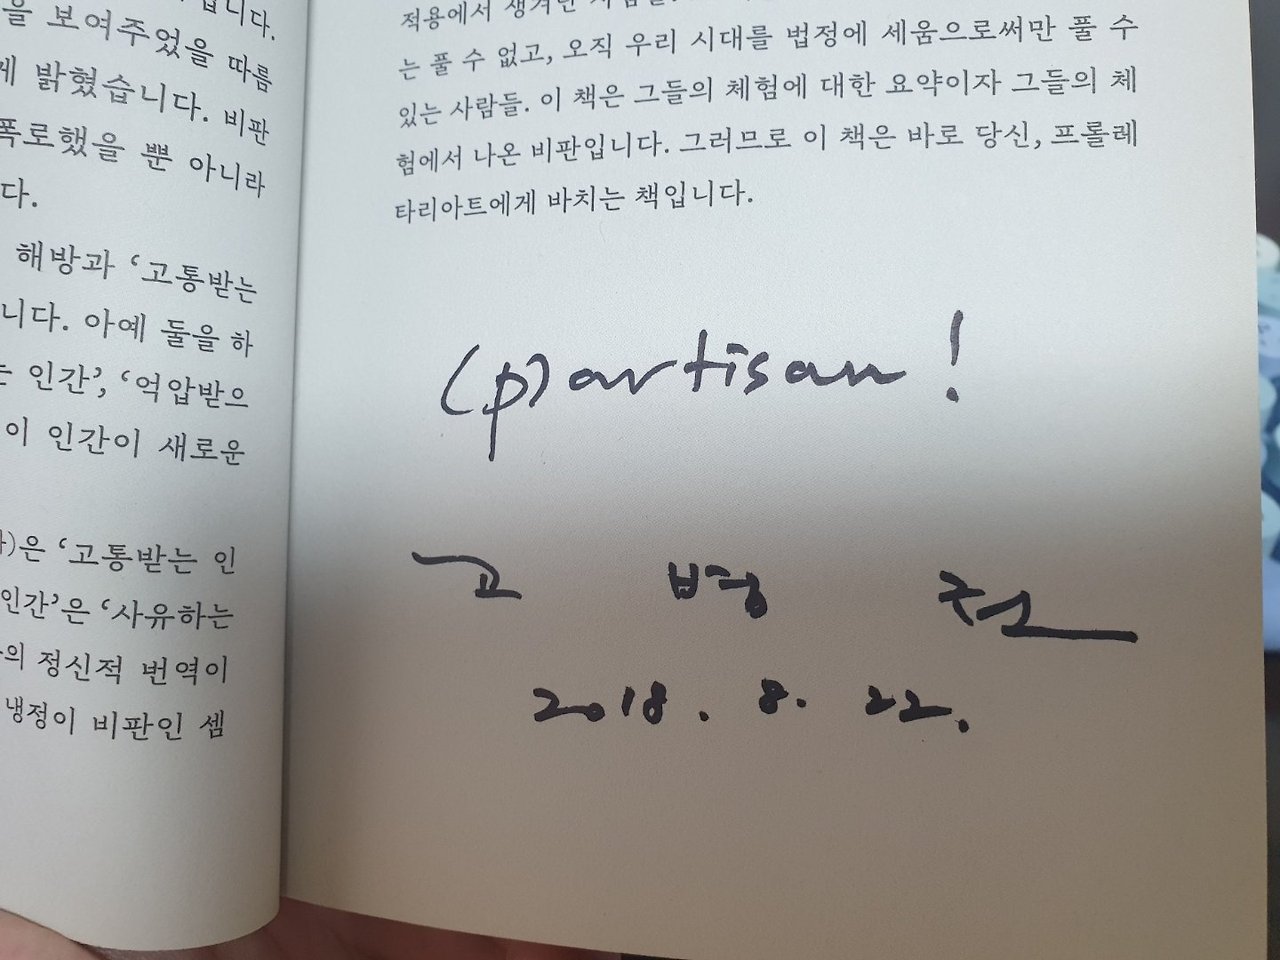 을 보여주었을 따름
밝혔습니다. 비판
폭로했을 뿐 아니라
다.
해방과 ‘고통받는
니다. 아예 둘을 하
인간’, ‘억압받으
이 인간이 새로운
)은 ‘고통받는 인
인간’은 ‘사유하는
의 정신적 번역이
냉정이 비판인 셈
적용에서 생겨난
는 풀 수 없고, 오직 우리 시대를 법정에 세움으로써만 풀 수
있는 사람들. 이 책은 그들의 체험에 대한 요약이자 그들의 체
험에서 나온 비판입니다. 그러므로 이 책은 바로 당신, 프롤레
타리아트에게 바치는 책입니다.
(p)artisan!
고 병 권
2018. 8. 22.